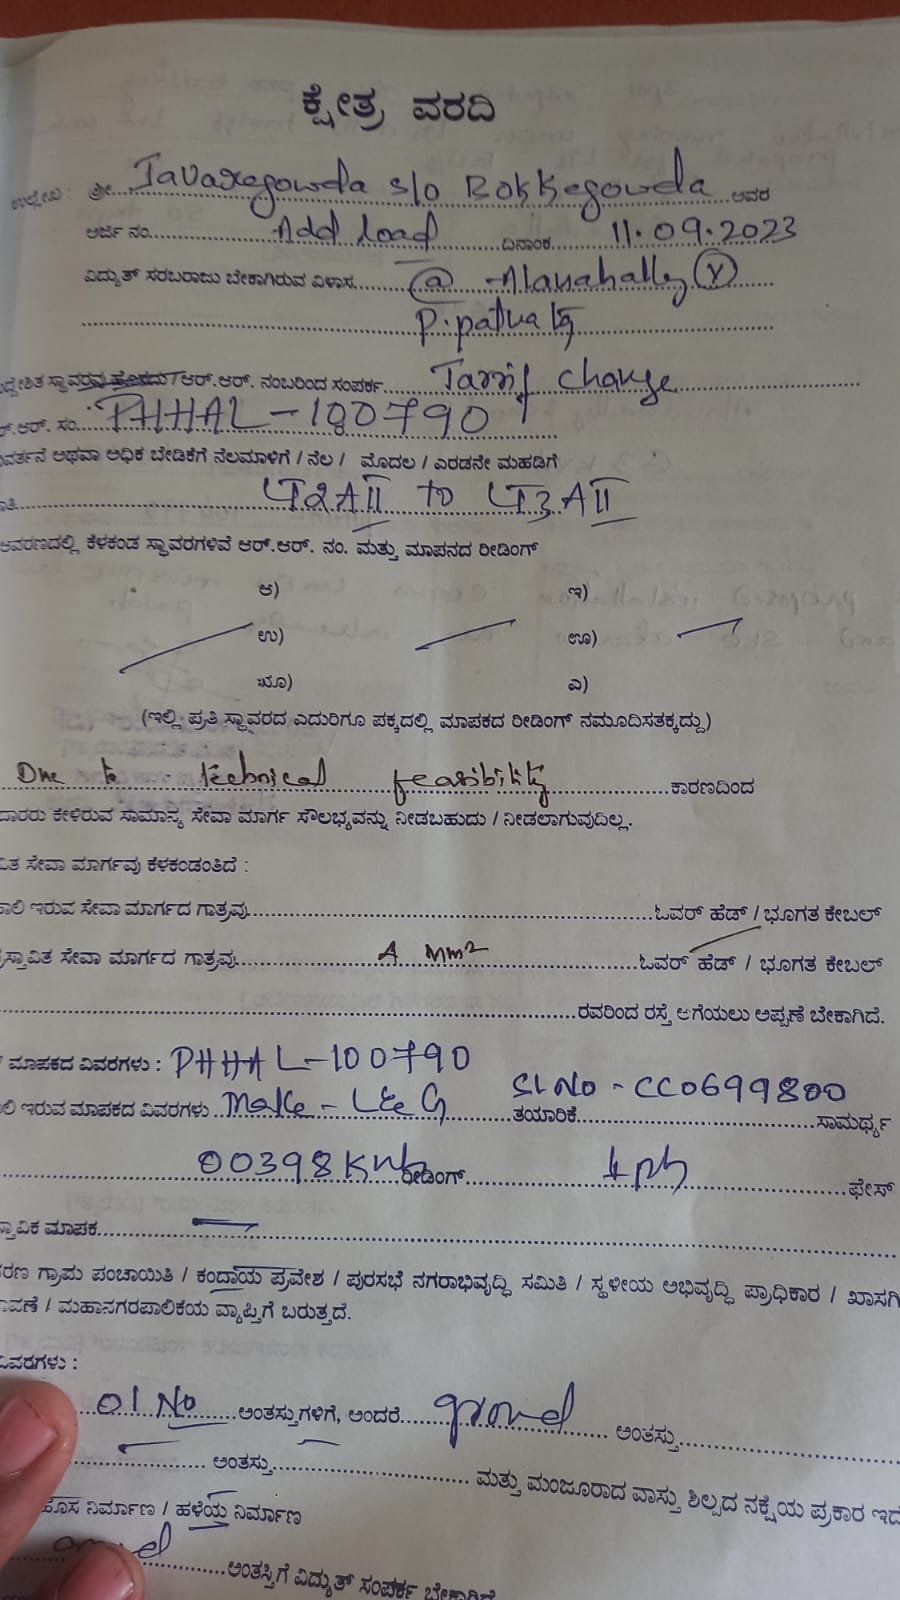 ಕ್ಷೇತ್ರ ವರದಿ
ಉಲ್ಲೇಖ : ಶ್ರೀ Javaregowda s/o Bokkegowda ಅವರ
ಅರ್ಜಿ ನಂ. Add load ದಿನಾಂಕ 11.09.2023
ವಿದ್ಯುತ್ ಸರಬರಾಜು ಬೇಕಾಗಿರುವ ವಿಳಾಸ @ Alanahally (V)
P.patna
ಆರ್.ಆರ್. ನಂಬರಿಂದ ಸಂಪರ್ಕ Tarrif change
ಆರ್. ಸಂ. PHHAL-100790
ಅಥವಾ ಅಧಿಕ ಬೇಡಿಕೆಗೆ ನೆಲಮಾಳಿಗೆ / ನೆಲ / ಮೊದಲ / ಎರಡನೇ ಮಹಡಿಗೆ
LT2AII to LT3AII
ಆವರಣದಲ್ಲಿ ಕೆಳಕಂಡ ಸ್ಥಾವರಗಳಿವೆ ಆರ್.ಆರ್. ನಂ. ಮತ್ತು ಮಾಪನದ ರೀಡಿಂಗ್
ಆ) ಇ)
ಉ) ಊ)
ಋ) ಎ)
(ಇಲ್ಲಿ ಪ್ರತಿ ಸ್ಥಾವರದ ಎದುರಿಗೂ ಪಕ್ಕದಲ್ಲಿ ಮಾಪಕದ ರೀಡಿಂಗ್ ನಮೂದಿಸತಕ್ಕದ್ದು)
Due to technical feasibility ಕಾರಣದಿಂದ
ದಾರರು ಕೇಳಿರುವ ಸಾಮಾನ್ಯ ಸೇವಾ ಮಾರ್ಗ ಸೌಲಭ್ಯವನ್ನು ನೀಡಬಹುದು / ನೀಡಲಾಗುವುದಿಲ್ಲ.
ಸೇವಾ ಮಾರ್ಗವು ಕೆಳಕಂಡಂತಿದೆ :
ಇರುವ ಸೇವಾ ಮಾರ್ಗದ ಗಾತ್ರವು ಓವರ್ ಹೆಡ್ / ಭೂಗತ ಕೇಬಲ್
ಸ್ತಾವಿತ ಸೇವಾ ಮಾರ್ಗದ ಗಾತ್ರವು 4 mm² ಓವರ್ ಹೆಡ್ / ಭೂಗತ ಕೇಬಲ್
ರವರಿಂದ ರಸ್ತೆ ಅಗೆಯಲು ಅಪ್ಪಣೆ ಬೇಕಾಗಿದೆ.
ಮಾಪಕದ ವಿವರಗಳು : PHHAL-100790
ಇರುವ ಮಾಪಕದ ವಿವರಗಳು Make - L&G ತಯಾರಿಕೆ Sl No - CC0699800 ಸಾಮರ್ಥ್ಯ
00398 Kwh ರೀಡಿಂಗ್ 1 ph ಫೇಸ್
ಸ್ತಾವಿಕ ಮಾಪಕ
ಗ್ರಾಮ ಪಂಚಾಯಿತಿ / ಕಂದಾಯ ಪ್ರವೇಶ / ಪುರಸಭೆ ನಗರಾಭಿವೃದ್ಧಿ ಸಮಿತಿ / ಸ್ಥಳೀಯ ಅಭಿವೃದ್ಧಿ ಪ್ರಾಧಿಕಾರ / ಖಾಸಗಿ
ಮಹಾನಗರಪಾಲಿಕೆಯ ವ್ಯಾಪ್ತಿಗೆ ಬರುತ್ತದೆ.
ವಿವರಗಳು :
01 No ಅಂತಸ್ತುಗಳಿಗೆ, ಅಂದರೆ ಅಂತಸ್ತು
ಅಂತಸ್ತು ಮತ್ತು ಮಂಜೂರಾದ ವಾಸ್ತು ಶಿಲ್ಪದ ನಕ್ಷೆಯ ಪ್ರಕಾರ
ಹೊಸ ನಿರ್ಮಾಣ / ಹಳೆಯ ನಿರ್ಮಾಣ
ಅಂತಸ್ತಿಗೆ ವಿದ್ಯುತ್ ಸಂಪರ್ಕ ಬೇಕಾಗಿದೆ